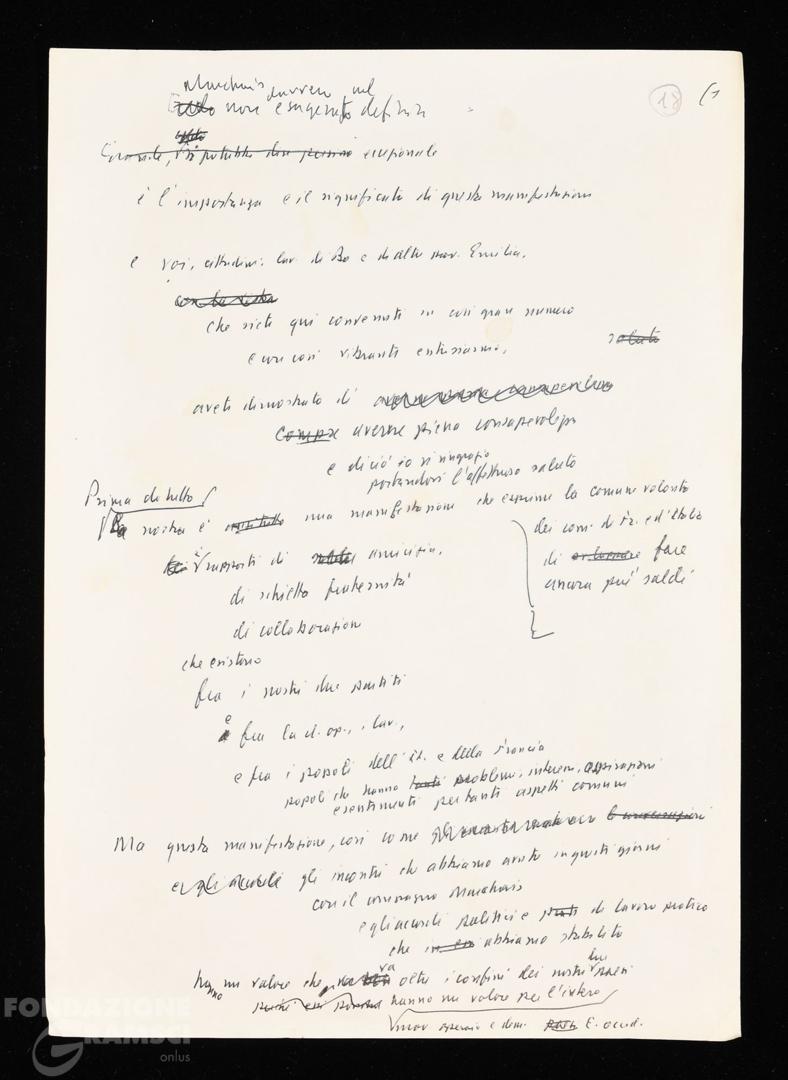 Marchais davvero nel
non è esagerato definir
18
Generale, si potrebbe dire persino eccezionale
è l'importanza e il significato di questa manifestazione
e voi, cittadini, lav. di Bo e di altre prov. Emilia,
con la vostra
che siete qui convenuti in così gran numero
e con così vibrante entusiasmo,
saluto
avete dimostrato di
compr averne piena consapevolezza
e di ciò io vi ringrazio
portandovi l'affettuoso saluto
Prima di tutto
La nostra è una manifestazione che esprime la comune volontà
dei com. di Fr. ed d'Italia
di fare
ancora più saldi
i rapporti di amicizia,
di schietta fraternità
di collaborazione
che esistono
fra i nostri due partiti
e fra la cl. op., i lav.,
e fra i popoli dell'It. e della Francia
popoli che hanno tanti problemi, interessi, aspirazioni
e sentimenti per tanti aspetti comuni
Ma questa manifestazione, così come
e gli gli incontri che abbiamo avuto in questi giorni
con il compagno Marchais
e gli accordi politici e di lavoro pratico
che abbiamo stabilito
hanno un valore che va oltre i confini dei nostri due paesi
hanno un valore per l'intero
mov operaio e dem. E. occid.
FONDAZIONE
GRAMSCI
onlus